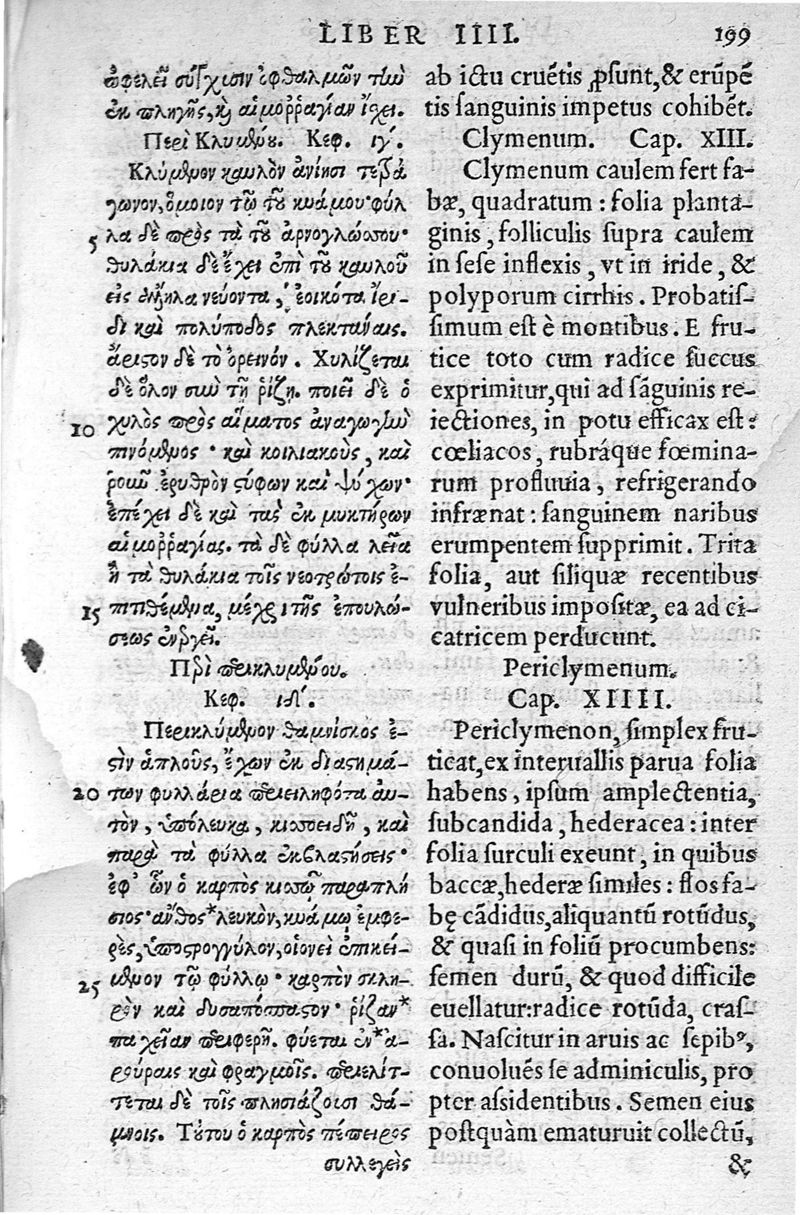 LIBER IIII. 199
ὠφελεῖ σύγχυσιν ὀφθαλμῶν τὴν
ἐκ πληγῆς, κỳ αἱμοῤῥαγίαν ἴχει.
Περὶ Κλυμένου. Κεφ. ιγ΄.
Κλύμενον καυλὸν ἀνίησι τετρά
γωνον, ὅμοιον τῷ τοῦ κυάμου· φύλ
5 λα δὲ πρὸς τὰ τοῦ ἀρνογλώσσου·
θυλάκια δὲ ἔχει ἐπὶ τοῦ καυλοῦ
εἰς ἄλληλα νεύοντα, ἐοικότα ἴρι-
δι καὶ πολύποδος πλεκτάναις.
ἄριστον δὲ τὸ ὀρεινόν. Χυλίζεται
δὲ ὅλον σὺν τῇ ῥίζῃ. ποιεῖ δὲ ὁ
10 χυλὸς πρὸς αἵματος ἀναγωγὴν
πινόμενος· καὶ κοιλιακοὺς, καὶ
ροῦν ἐρυθρὸν στύφων καὶ ψύχων·
ἐπέχει δὲ καὶ τὰς ἐκ μυκτήρων
αἱμοῤῥαγίας. τὰ δὲ φύλλα λεῖα
ἢ τὰ θυλάκια τοῖς νεοτρώτοις ἐ-
15 πιτιθέμενα, μέχρι τῆς ἐπουλώ-
σεως ἐνεργεῖ.
Περὶ περικλυμένου.
Κεφ. ιδ΄.
Περικλύμενον θαμνίσκος ἐ-
στὶν ἁπλοῦς, ἔχων ἐκ διαστημά-
20 των φυλλάρια περιειληφότα αὐ-
τὸν, ὑπόλευκα, κισσοειδῆ, καὶ
παρὰ τὰ φύλλα ἐκβλαστήσεις·
ἐφ' ὧν ὁ καρπὸς κισσῷ παραπλή
σιος· ἄνθος* λευκὸν, κυάμῳ ἐμφε-
ρὲς, ὑποστρογγύλον, οἱονεὶ ἐπικεί-
25 μενον τῷ φύλλῳ· καρπὸν σκλη-
ρὸν καὶ δυσαπόσπαστον· ῥίζαν*
παχεῖαν περιφερῆ. φύεται ἐν* ἀ-
ρούραις καὶ φραγμοῖς. περιελίτ-
τεται δὲ τοῖς πλησιάζουσι θά-
μνοις. Τούτου ὁ καρπὸς πέπειρος
συλλεγεὶς
ab ictu cruẽtis ꝓsunt, & erũpẽ
tis sanguinis impetus cohibẽt.
Clymenum. Cap. XIII.
Clymenum caulem fert fa-
bæ, quadratum : folia planta-
ginis, folliculis supra caulem
in sese inflexis, vt in iride, &
polyporum cirrhis. Probatis-
simum est è montibus. E fru-
tice toto cum radice succus
exprimitur, qui ad sãguinis re-
iectiones, in potu efficax est:
cœliacos, rubráque fœmina-
rum profluuia, refrigerando
infrænat : sanguinem naribus
erumpentem supprimit. Trita
folia, aut siliquæ recentibus
vulneribus impositæ, ea ad ci-
catricem perducunt.
Periclymenum.
Cap. XIIII.
Periclymenon, simplex fru-
ticat, ex interuallis parua folia
habens, ipsum amplectentia,
subcandida, hederacea : inter
folia surculi exeunt, in quibus
baccæ, hederæ similes : flos fa-
bę cãdidus, aliquantũ rotũdus,
& quasi in foliũ procumbens:
semen durũ, & quod difficile
euellatur: radice rotũda, cras-
sa. Nascitur in aruis ac sepibꝰ,
conuoluẽs se adminiculis, pro
pter assidentibus. Semen eius
postquàm ematuruit collectũ,
&